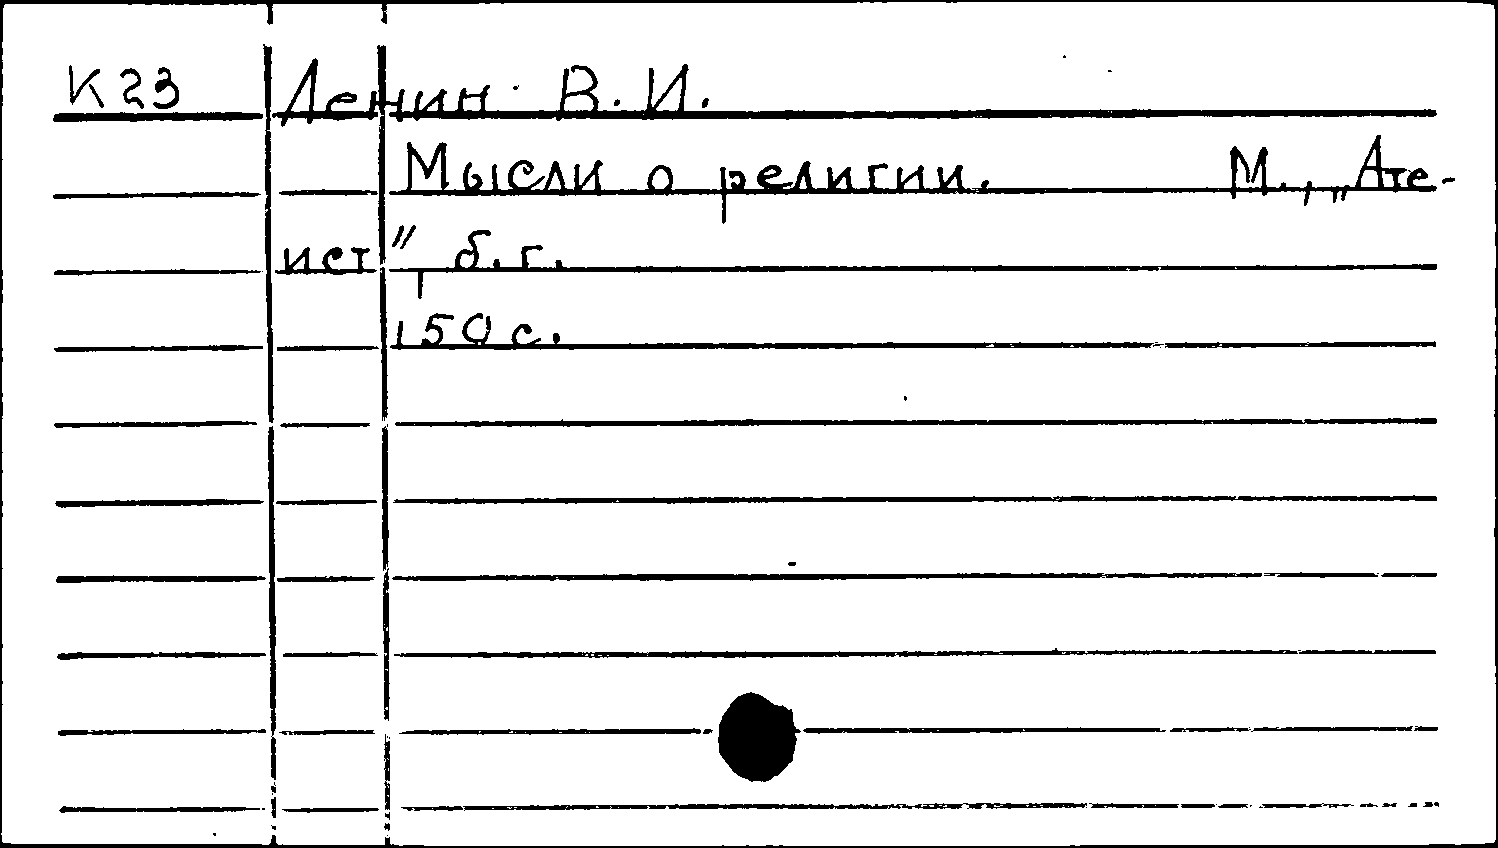 К23 Ленин В.И.
Мысли о религии. М., „Ате-
ист", б.г.
150 с.